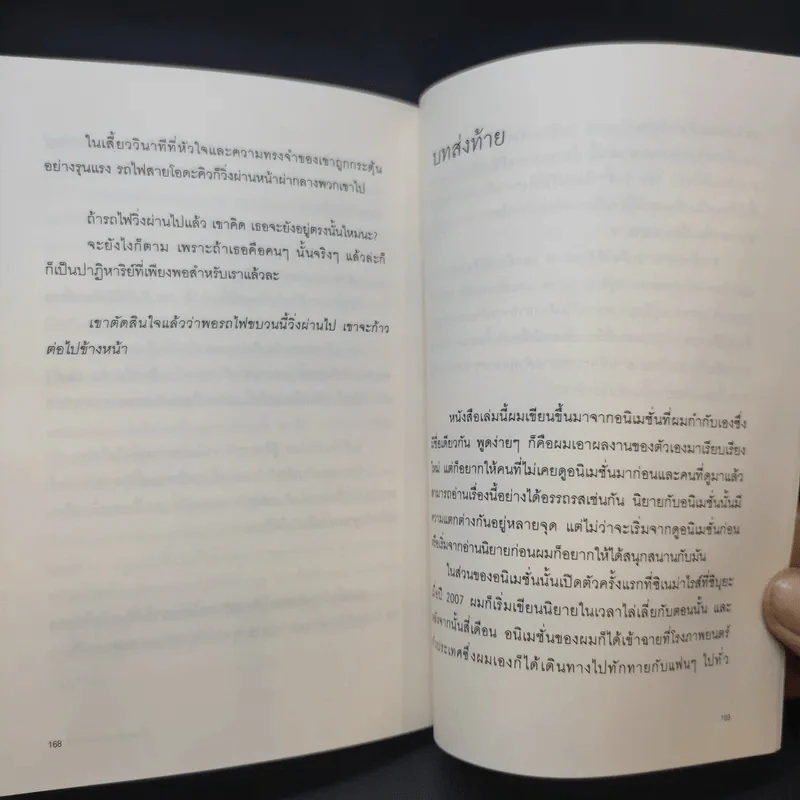 ในเสี้ยววินาทีที่หัวใจและความทรงจำของเขาถูกกระตุ้น
อย่างรุนแรง รถไฟสายโอดะคิวก็วิ่งผ่านหน้าผ่ากลางพวกเขาไป
ถ้ารถไฟวิ่งผ่านไปแล้ว เขาคิด เธอจะยังอยู่ตรงนั้นไหมนะ?
จะยังไงก็ตาม เพราะถ้าเธอคือคนๆ นั้นจริงๆ แล้วล่ะก็
ก็เป็นปาฏิหาริย์ที่เพียงพอสำหรับเราแล้วละ
เขาตัดสินใจแล้วว่าพอรถไฟขบวนนี้วิ่งผ่านไป เขาจะก้าว
ต่อไปข้างหน้า
168
บทส่งท้าย
หนังสือเล่มนี้ผมเขียนขึ้นมาจากอนิเมชั่นที่ผมกำกับเองซึ่ง
มีชื่อเดียวกัน พูดง่ายๆ ก็คือผมเอาผลงานของตัวเองมาเรียบเรียง
ใหม่ แต่ก็อยากให้คนที่ไม่เคยดูอนิเมชั่นมาก่อนและคนที่ดูมาแล้ว
สามารถอ่านเรื่องนี้อย่างได้อรรถรสเช่นกัน นิยายกับอนิเมชั่นนั้นมี
ความแตกต่างกันอยู่หลายจุด แต่ไม่ว่าจะเริ่มจากดูอนิเมชั่นก่อน
หรือเริ่มจากอ่านนิยายก่อนผมก็อยากให้ได้สนุกสนานกับมัน
ในส่วนของอนิเมชั่นนั้นเปิดตัวครั้งแรกที่ซิเนม่าไรส์ที่ชิบุยะ
เมื่อปี 2007 ผมก็เริ่มเขียนนิยายในเวลาไล่เลี่ยกับตอนนั้น และ
หลังจากนั้นสี่เดือน อนิเมชั่นของผมก็ได้เข้าฉายที่โรงภาพยนตร์
ทั่วประเทศซึ่งผมเองก็ได้เดินทางไปทักทายกับแฟนๆ ไปทั่ว
169